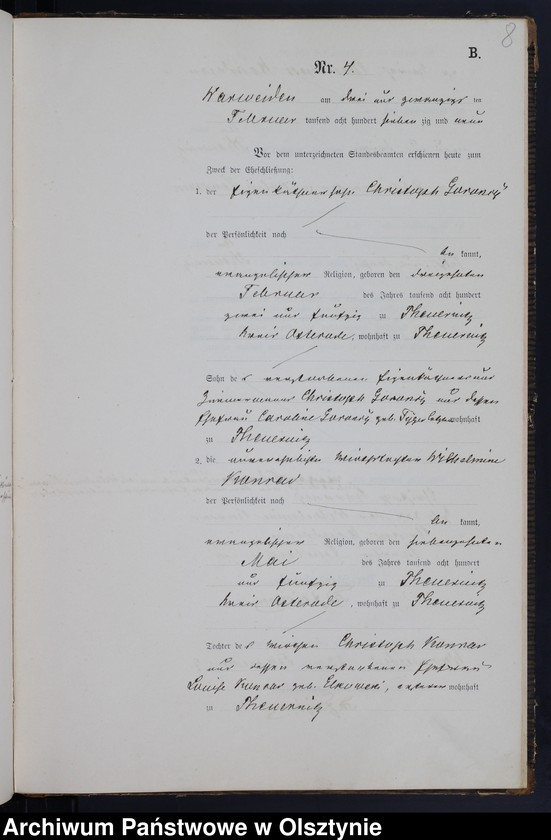 8
B.
Nr. 4.
Warweiden am drei und zwanzigs ten
Februar tausend acht hundert sieben zig und neun
Vor dem unterzeichneten Standesbeamten erschienen heute zum
Zweck der Eheschließung:
1. der Eigenkäthnersohn Christoph
der Persönlichkeit nach
be kannt,
evangelischer Religion, geboren den dreizehnten
Februar des Jahres tausend acht hundert
zwei und fünfzig zu Theuernitz
Kreis Osterode, wohnhaft zu Theuernitz
Sohn des verstorbenen Eigenkäthners und
Zimmermanns Christoph und dessen
Ehefrau Caroline geb. wohnhaft
zu Theuernitz
2. die unverehelichte Wirthstochter Wilhelmine
Konrad
der Persönlichkeit nach
be kannt,
evangelischer Religion, geboren den siebenzehnten
Mai des Jahres tausend acht hundert
und fünfzig zu Theuernitz
Kreis Osterode, wohnhaft zu Theuernitz
Tochter des Wirthen Christoph Konrad
und dessen verstorbenen Ehefrau
Louise Konrad geb. Elkowski, ersterer wohnhaft
zu Theuernitz
Archiwum Państwowe w Olsztynie